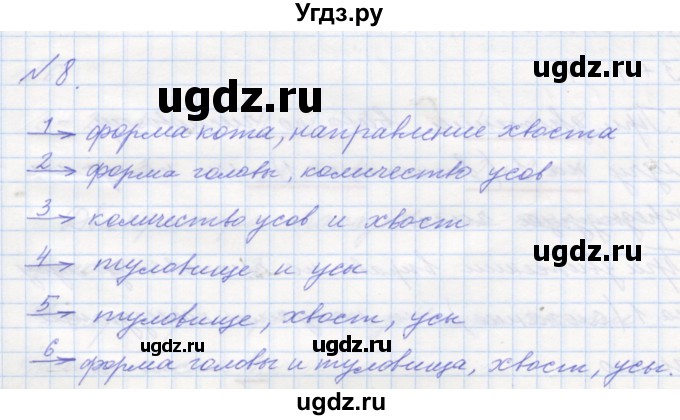 Угдз.ру
№ 8.
1→ форма кота, направление хвоста
2→ форма головы, количество усов
3→ количество усов и хвост
4→ туловище и усы
5→ туловище, хвост, усы
6→ форма головы и туловища, хвост, усы.
ugdz.ru
ugdz.ru
ugdz.ru
ugdz.ru
ugdz.ru
ugdz.ru
ugdz.ru
ugdz.ru